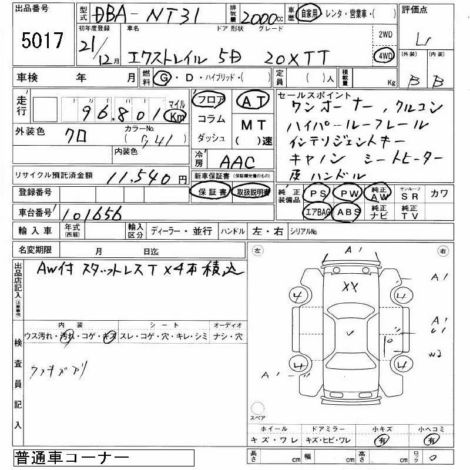 出品番号 5017
型式 DBA-NT31 排気量 2000cc 車歴 自家用・レンタ・営業車・( ) 評価点
初年度登録 21/12月 車名 エクストレイル ドア 形状 5D グレード 20XTT 2WD 4WD
車検 年 月 燃料 G・D・ハイブリッド・( ) 定員 ( )人 積載量 Kg (外装) B (内装) B
走行 96,801 マイル Km フロア コラム ダッシュ AT MT ( )速
セールスポイント
ワンオーナー、クルコン
ハイパールーフレール
インテリジェントキー
キャノン シートヒーター
皮ハンドル
外装色 クロ カラーNo.
内装色 冷房 AAC
リサイクル預託済金額 11,540円 新車保証書(保証継続分のもの) 保証書 取扱説明書
登録番号 純正装備品 PS PW 純正AW サンルーフSR カワ
車台番号 101656 エアBAG ABS 純正ナビ 純正TV
輸入車 年式(西暦) 年 輸入区分 ディーラー・並行 ハンドル 左・右 シリアルNo
名変期限 月 日迄
出品店記入(注意事項) AW付 スタッドレスT×4本積込
検査員記入
内装 シート オーディオ
ウス汚れ・汚れ・コゲ・キズ スレ・コゲ・穴・キレ・シミ ナシ・穴
左 右
A1
XX
4 4
A1
4 4
A' A'
スペア
ホイール ドアミラー 小キズ 小ヘコミ
キズ・ワレ キズ・ヒビ・ワレ 有 有
長さ cm 幅 cm 高さ cm ログ 0
普通車コーナー